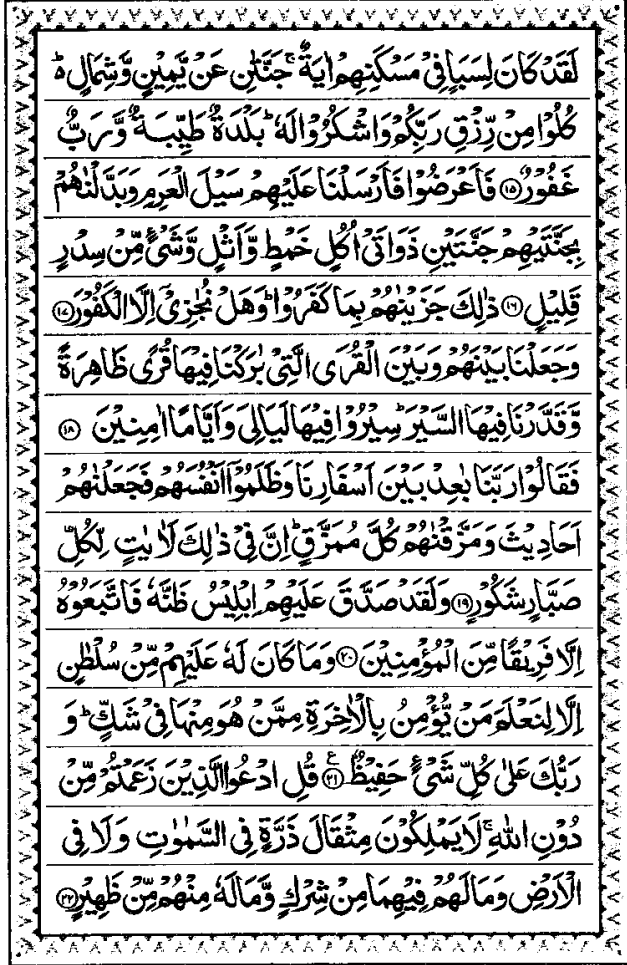 لَقَدۡ كَانَ لِسَبَاٍ فِىۡ مَسۡكَنِهِمۡ اٰيَةٌ ۚ جَنَّتٰنِ عَنۡ يَّمِيۡنٍ وَّشِمَالٍ ؕ
كُلُوۡا مِنۡ رِّزۡقِ رَبِّكُمۡ وَاشۡكُرُوۡا لَهٗ ؕ بَلۡدَةٌ طَيِّبَةٌ وَّرَبٌّ
غَفُوۡرٌ ﴿۱۵﴾ فَاَعۡرَضُوۡا فَاَرۡسَلۡنَا عَلَيۡهِمۡ سَيۡلَ الۡعَرِمِ وَبَدَّلۡنٰهُمۡ
بِجَنَّتَيۡهِمۡ جَنَّتَيۡنِ ذَوَاتَىۡ اُكُلٍ خَمۡطٍ وَّاَثۡلٍ وَّشَىۡءٍ مِّنۡ سِدۡرٍ
قَلِيۡلٍ ﴿۱۶﴾ ذٰلِكَ جَزَيۡنٰهُمۡ بِمَا كَفَرُوۡا ؕ وَهَلۡ نُجٰزِىۡۤ اِلَّا الۡكَفُوۡرَ ﴿۱۷﴾
وَجَعَلۡنَا بَيۡنَهُمۡ وَبَيۡنَ الۡقُرَى الَّتِىۡ بٰرَكۡنَا فِيۡهَا قُرًى ظَاهِرَةً
وَّقَدَّرۡنَا فِيۡهَا السَّيۡرَ ؕ سِيۡرُوۡا فِيۡهَا لَيَالِىَ وَاَيَّامًا اٰمِنِيۡنَ ﴿۱۸﴾
فَقَالُوۡا رَبَّنَا بٰعِدۡ بَيۡنَ اَسۡفَارِنَا وَظَلَمُوۡۤا اَنۡفُسَهُمۡ فَجَعَلۡنٰهُمۡ
اَحَادِيۡثَ وَمَزَّقۡنٰهُمۡ كُلَّ مُمَزَّقٍ ؕ اِنَّ فِىۡ ذٰلِكَ لَاٰيٰتٍ لِّكُلِّ
صَبَّارٍ شَكُوۡرٍ ﴿۱۹﴾ وَلَقَدۡ صَدَّقَ عَلَيۡهِمۡ اِبۡلِيۡسُ ظَنَّهٗ فَاتَّبَعُوۡهُ
اِلَّا فَرِيۡقًا مِّنَ الۡمُؤۡمِنِيۡنَ ﴿۲۰﴾ وَمَا كَانَ لَهٗ عَلَيۡهِمۡ مِّنۡ سُلۡطٰنٍ
اِلَّا لِنَعۡلَمَ مَنۡ يُّؤۡمِنُ بِالۡاٰخِرَةِ مِمَّنۡ هُوَ مِنۡهَا فِىۡ شَكٍّ ؕ وَ
رَبُّكَ عَلٰى كُلِّ شَىۡءٍ حَفِيۡظٌ ﴿۲۱﴾ ع قُلِ ادۡعُوا الَّذِيۡنَ زَعَمۡتُمۡ مِّنۡ
دُوۡنِ اللّٰهِ ۚ لَا يَمۡلِكُوۡنَ مِثۡقَالَ ذَرَّةٍ فِى السَّمٰوٰتِ وَلَا فِى
الۡاَرۡضِ وَمَا لَهُمۡ فِيۡهِمَا مِنۡ شِرۡكٍ وَّمَا لَهٗ مِنۡهُمۡ مِّنۡ ظَهِيۡرٍ ﴿۲۲﴾